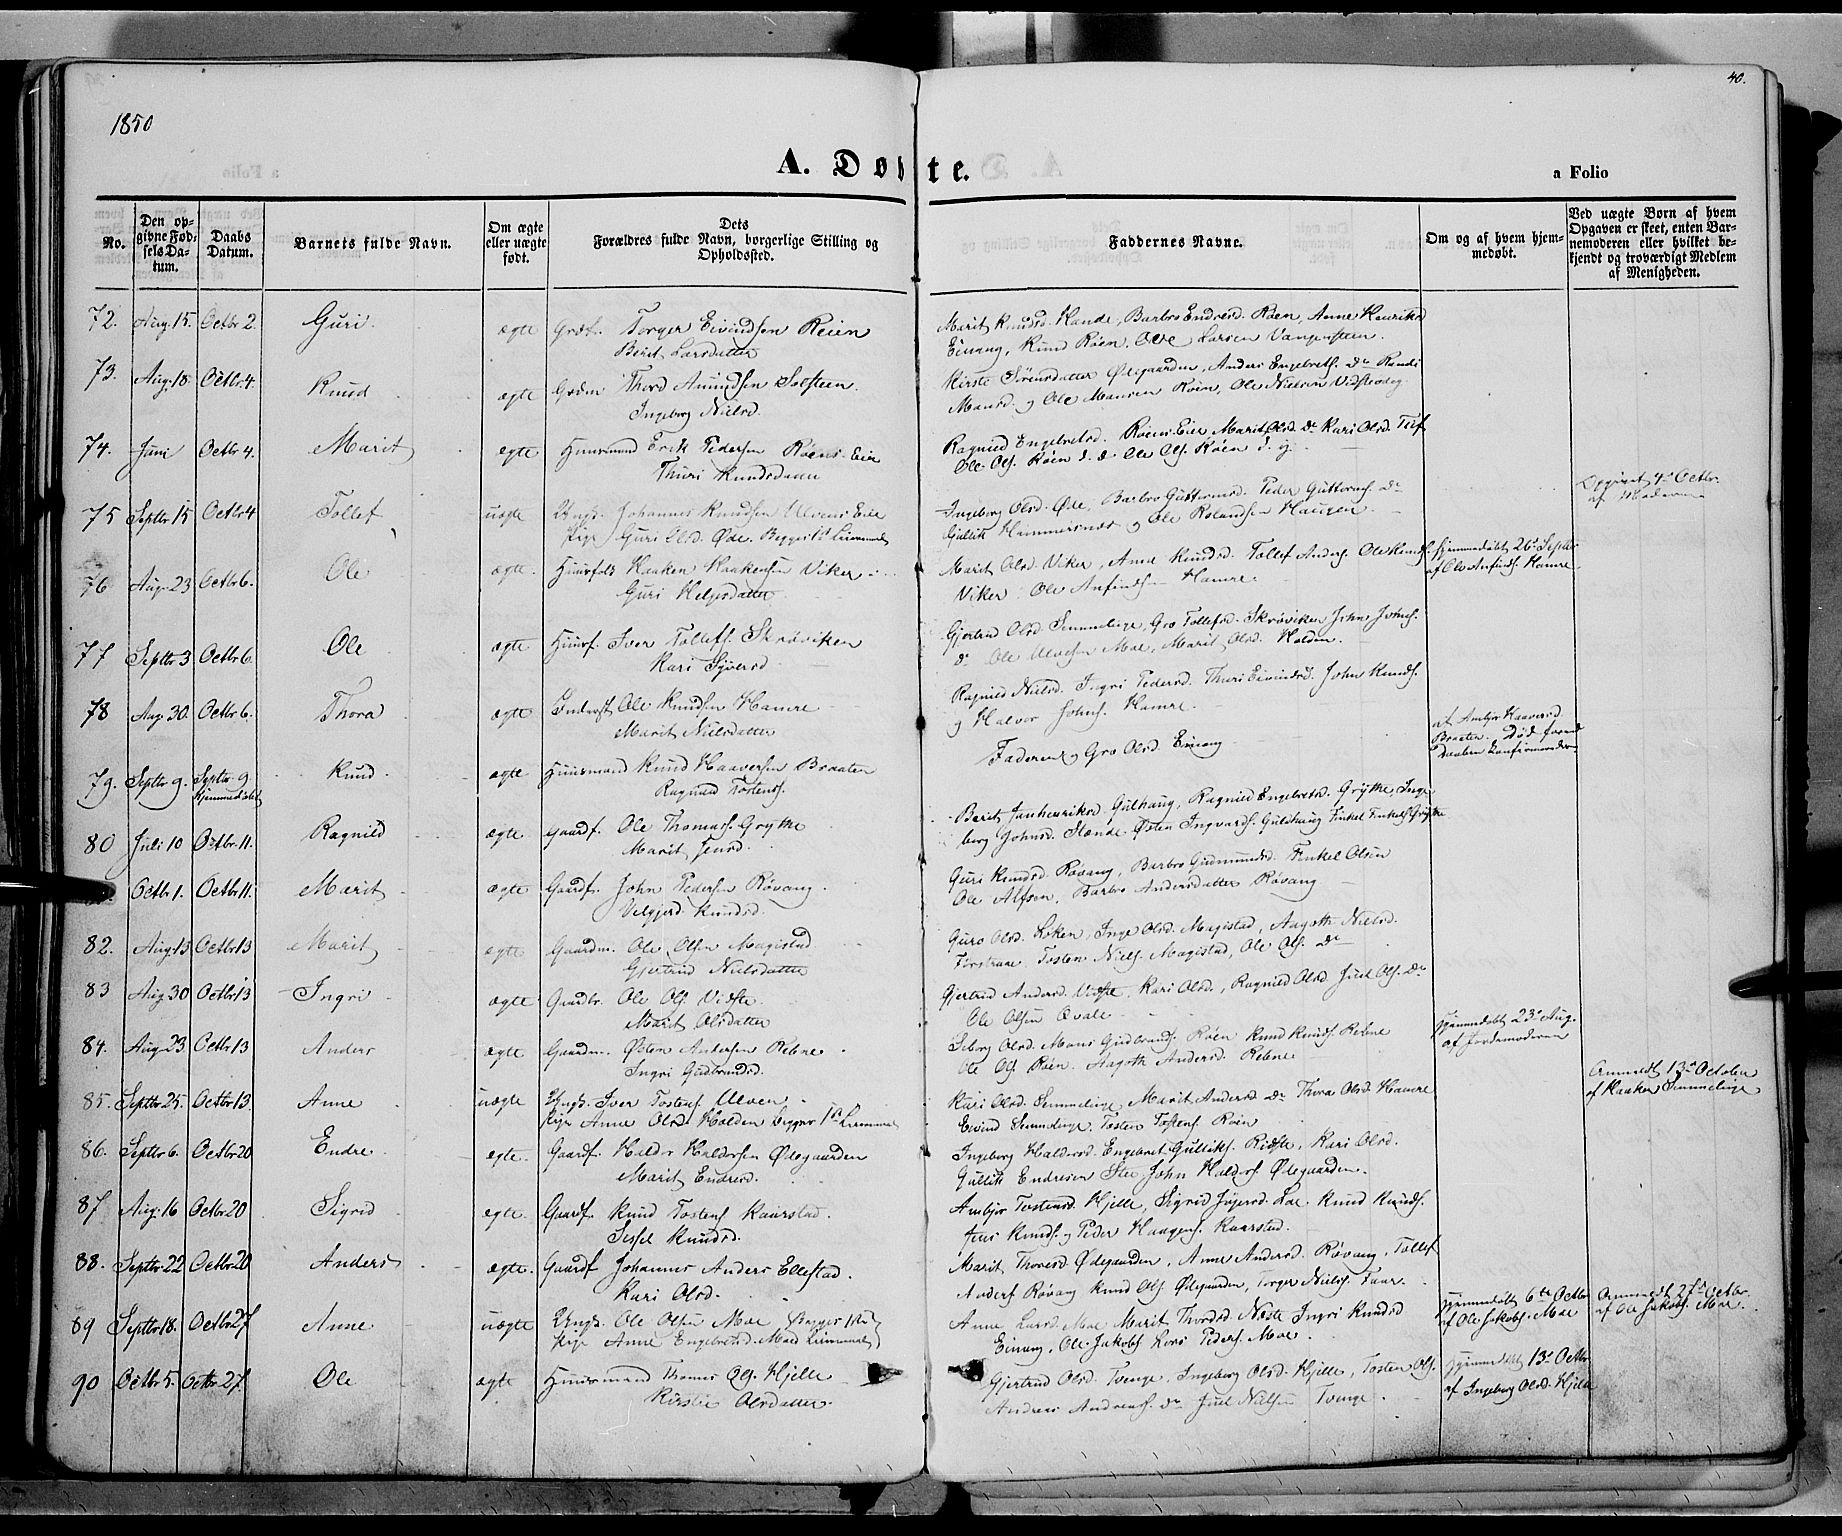 40.
1850
A. Døbte.
a Folio
No.
Den opgivne Fødselsdatum.
Daabs Datum.
Barnets fulde Navn.
Om ægte eller uægte født.
Dets Forældres fulde Navn, borgerlige Stilling og Opholdssted.
Faddernes Navne.
Om og af hvem hjemmedøbt.
Ved uægte Børn af hvem Opgaven er skeet, enten Barnemoderen eller hvilket bekjendt og troværdigt Medlem af Menigheden.
72. Aug. 15. Octbr 2. Guri. ægte Torger Eivindsen Reien
Berit Larsdatter
Marit Knudsd. Hande, Barbro Endresd. Røen, Anne Henriksd
Einang, Knud Røen, Ole Larsen Vangensteen.
73. Aug. 18. Octbr. 4. Knud ægte Thord Amundsen Solsteen.
Ingeborg Nielsd.
Kirste Sørensdatter Ødegaarden, Anders Engebrets. do Randi
Monsd. og Ole Monsen Røen, Ole Nielsen
74. Juni Octbr 4. Marit ægte Huusmand Erik Pedersen Røens Eie
Thuri Knudsdatter
Ragnild Engebretsd. Røens Eie Marit Olsd. do Kari Olsd.
Ole Ols. Røen d. æ Ole Ols. Røen d. y.
75 Septbr 15 Octbr 4 Tollef uægte Ungk. Johannes Knudsen Ulvens Eie
Pige Guri Olsd. Øde. Begges 1ste Leiermaal
Ingeborg Olsd. Øde, Barbro Guttormsd. Peder Guttorms. do
Gullik Hammersnæs og Ole Rolandsen Haugen.
Opgivet 4de Octbr.
af Moderen
76 Aug. 23 Octbr 6. Ole ægte. Haaken Haakensen Viker
Guri Helgesdatter
Marit Olsd. Viker, Anne Knudsd. Tollef Anders. Ole Knuds.
Viker. Ole Anfinds. Hamre.
Hjemmedøbt 26de Septbr
af Ole Anfinds. Hamre
77 Septbr 3 Octbr 6. Ole ægte Huusf. Iver Tollefs. Skrøviken
Kari Syversd
Gjertrud Olsd. Semmelinge, Gro Tollefsd. Skrøviken John Johns.
do Ole Ulvesen Moe, Marit Olsd. Holden.
78 Aug 30. Octbr 6. Thora ægte Inderst Ole Knudsen Hamre
Marit Nielsdatter
Ragnild Nielsd. Ingri Pedersd. Thuri Eivindsd. John Knuds.
og Halvor Johns. Hamre.
79. Septbr 9. Septbr 9 Hjemmedøbt Knud ægte Huusmand Knud Haaversen Braaten
Ragnild Tostens.
Faderen og Gro Olsd. Einang
af Ambjør Haaversd
Braaten. Død forend
Daaben confirmeredes
80 Juli 10 Octbr. 11. Ragnild ægte Gaardf. Ole Thomas. Grythe
Marit Jensd.
Berit Janhenriksd Gulhaug, Ragnild Engebretsd. Grythe, Inge
borg Johnsd. Hande Østen Ingvards. Gulhaug Finkel Finkels. Grythe
Octbr 1. Octbr. 11. Marit ægte Gaardf. John Pedersen Røvang.
Velgjerd Knudsd.
Guri Knudsd. Røvang, Barbro Gudmundsd. Finkel Olsen
Ole Alfson, Barbro Andersdatter Røvang
82. Aug. 13 Octbr 13 Marit ægte Gaardm. Ole Olsen Magistad
Gjertrud Nielsdatter
Guro Olsd. Loken, Inge Olsd. Magistad, Aagoth Nielsd.
Tosten Niels. Magistad, Ole Ols. do
83 Aug 30 Octbr 13 Ingri ægte Ole Ols. Vidste
Marit Olsdatter
Gjertrud Andersd. Vidste. Kari Olsd., Ragnild Olsd Juel Ols. do
Ole Olsen Qvale
84. Aug. 23 Octbr 13 Anders ægte Gaardm. Østen Andersen Rebne.
Ingri Gudbrandsd.
Siborg Olsd. Mons Gudbrands. Røen Knud Knuds. Rebne
Ole Ols. Røen. Aagoth Andersd. Rebne
Hjemmedøbt 23de Aug.
af Jordemoderen
85. Septbr 25. Octbr 13. Anne uægte Ungk. Iver Tostens Ulven
Pige Anne Olsd. Holden begges 1ste Leiermaal
Kari Olsd. Semmelinge, Marit Andersd. do Thora Olsd. Hamre
Eivind Semelinge. Tosten Tostens. Røen
Anmeldt 13de October
af Haaken Semmelinge
86. Septbr 6. Octbr 20 Endre ægte. Gaardf. Haldor Haldorsen Ødegaarden
Marit Endresd.
Ingeborg Haldorsd. Engebret Gulliks. Ridste, Kari Olsd.
Gullik Endresen John Haldors. Ødegaarden.
87 Aug. 16 Octbr 20 Sigrid ægte. Gaardf. Knud Tostens Kaarstad.
Sissel Knudsd.
Ambjør Tostensd. Hjelle, Sigrid Lae. Knud Knuds.
Jens Knuds. og Peder Haagens. Kaarstad.
88. Septbr 22 Octbr 20 Anders ægte. Gaardf. Johannes Anders Ellestad.
Kari Olsd.
Marit Thoresd. Ødegaarden, Anne Andersd. Røvang, Tollef
Anders Røvang Knud Ols. Ødegaarden, Torger Niels.
89 Septbr 18. Octbr. 27 Anne uægte Ungk. Ole Olsen Moe Begges 1ste
Pige Anne Engebretsd. Moe Leiermaal
Anne Larsd. Moe Marit Thordsd Neste Ingri Knudsd
Einang, Ole Jakobs Lars Peders. Moe.
Hjemmedøbt 6te Octbr
af Ole Jakobs. Moe
Anmeldt 27de Octbr.
af Ole Jakobs. Moe
90 Octbr 5. Octbr 27. Ole ægte Huusmand Thomas Ols. Hjelle
Kirstie Olsdatter.
Gjertrud Olsd. Tvenge, Ingeborg Olsd. Hjelle, Tosten Ols.
Andreas Andreas. do Juel Nielsen Tvenge.
Hjemmedøbt 13de Octbr.
af Ingeborg Olsd. Hjelle